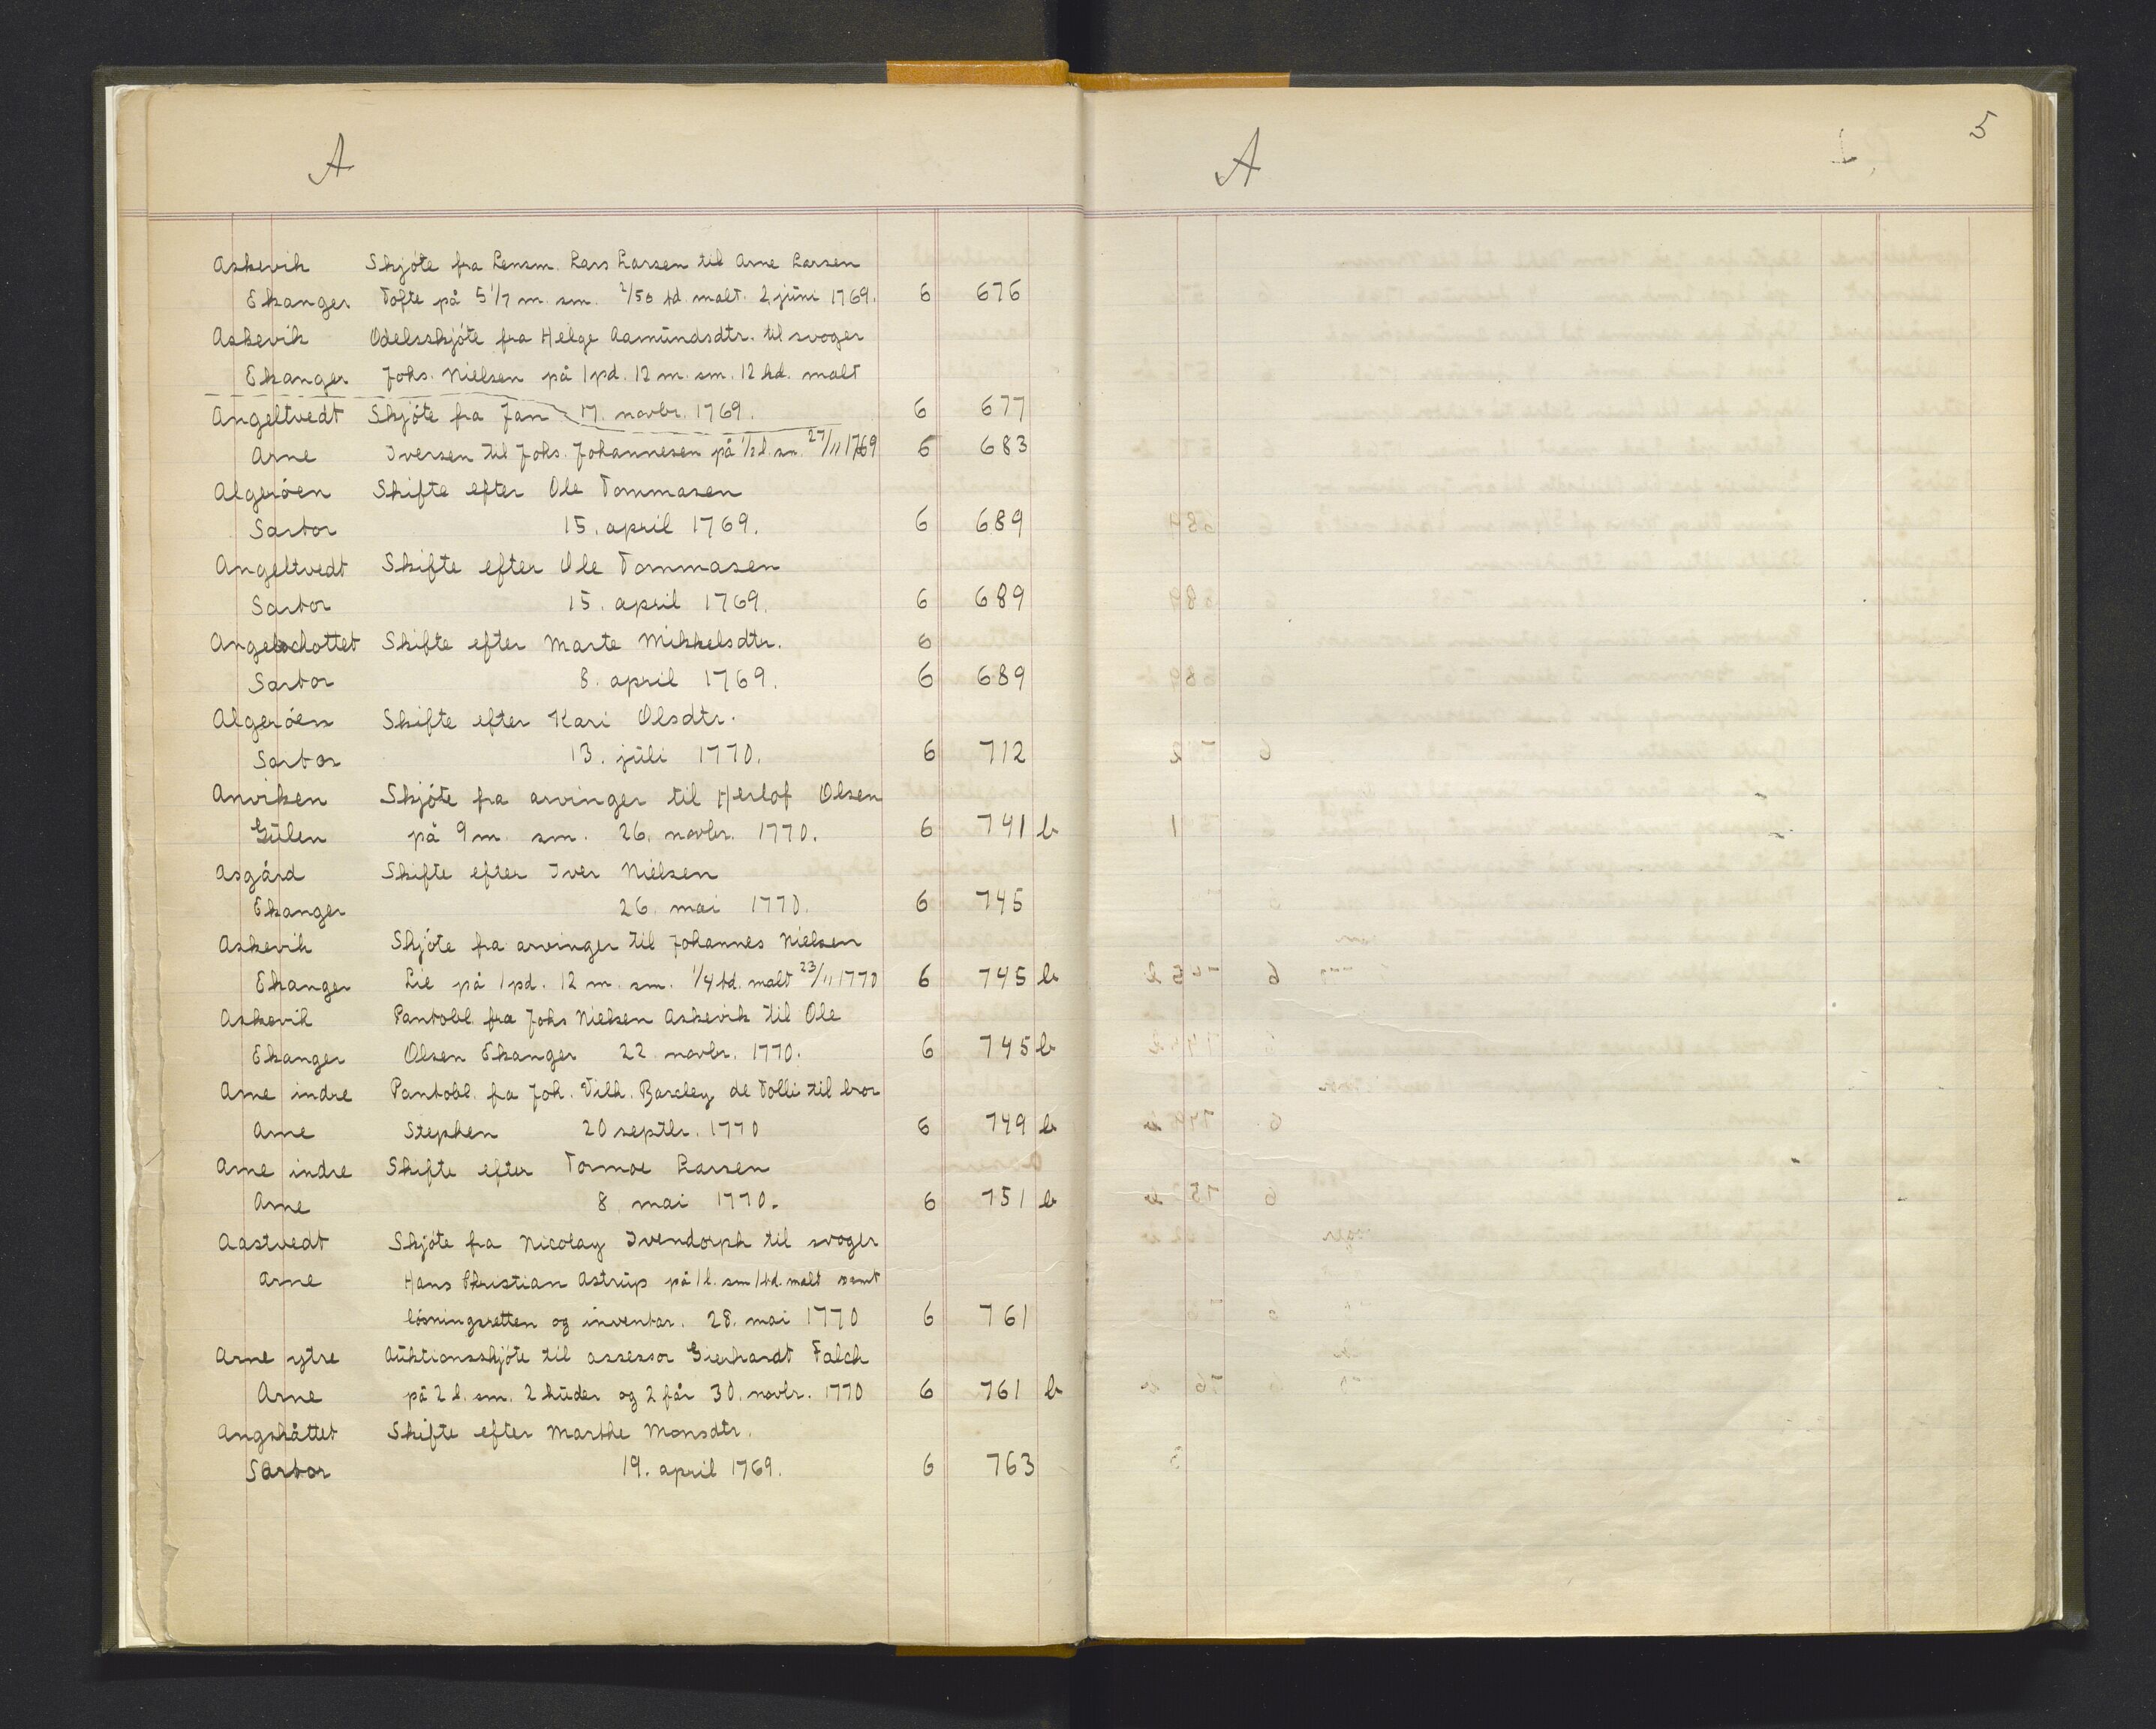 A
Askevik Skjöte fra Lensm. Lars Larsen til Arne Larsen
Ekanger Tofte på 5 1/7 m. sm. 2/50 td. malt. 2 juni 1769. 6 676
Askevik Odelsskjöte fra Helge Aamundsdtr. til svoger
Ekanger Johs. Nielsen på 1 pd. 12 m. sm. 12 kd. malt
Angeltvedt Skjöte fra Jan 17. novbr. 1769. 6 677
Arne Iversen til Johs. Johannesen på 1/2 l. sm. 27/11 1769 6 683
Algeröen Skifte efter Ole Tommasen
Sartor 15. april 1769. 6 689
Angeltvedt Skifte efter Ole Tommasen
Sartor 15. april 1769. 6 689
Angelschottet Skifte efter Marte Mikkelsdtr. 6
Sartor 8. april 1769. 6 689
Algeröen Skifte efter Kari Olsdtr.
Sartor 13. juli 1770. 6 712
Anviken Skjöte fra arvinger til Herlof Olsen
Gulen på 9 m. sm. 26. novbr. 1770. 6 741 b
Asgård Skifte efter Iver Nielsen
Ekanger 26. mai 1770. 6 745
Askevik Skjöte fra arvinger til Johannes Nielsen
Ekanger Lie på 1 pd. 12 m. sm. 1/4 td. malt 23/11 1770 6 745 b
Askevik Pantobl. fra Johs Nielsen Askevik til Ole
Ekanger Olsen Ekanger 22. novbr. 1770. 6 745 b
Arne indre Pantobl. fra Joh. Vilh. Barcley de Tolli til bror
Arne Stephen 20 septbr. 1770 6 749 b
Arne indre Skifte efter Tormoe Larsen
Arne 8. mai 1770. 6 751 b
Aastvedt Skjöte fra Nicolay Ivendorph til svoger
Arne Hans Christian Astrup på 1 l. sm 1 td. malt samt
lösningsretten og inventar. 28. mai 1770 6 761
Arne ytre Auktionsskjöte til assessor Gierhardt Falch
Arne på 2 l. sm. 2 huder og 2 får 30. novbr. 1770 6 761 b
Angskåttet Skifte efter Marthe Monsdtr.
Sartor 19. april 1769. 6 763
A
5